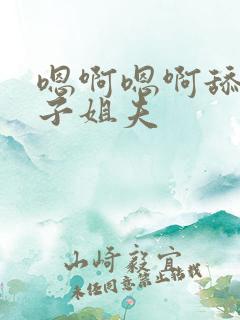 嗯啊嗯啊舔
子姐夫
山崎毅宜
未经同意禁止转载